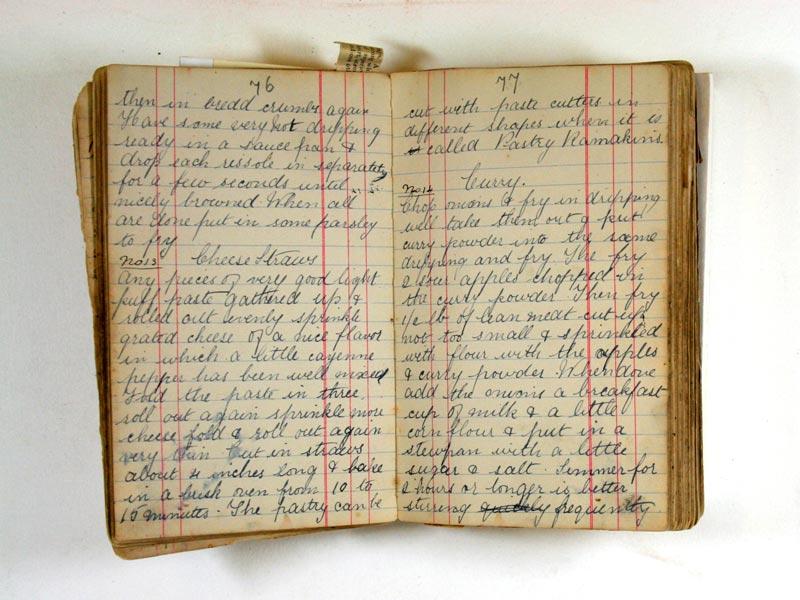 76
then in bredd crumbs again
Have some very hot dripping
ready in a sauce pan &
drop each ressole in separately
for a few seconds until
nicely browned When all
are done put in some parsley
to fry
No13 Cheese Straws
Any pieces of very good light
puff paste gathered up &
rolled out evenly sprinkle
grated cheese of a nice flavor
in which a little cayenne
pepper has been well mixed
Fold the paste in three,
roll out again sprinkle more
cheese fold & roll out again
very thin Cut in straws
about 4 inches long & bake
in a brisk oven from 10 to
15 minutes. The pastry can be
77
cut with paste cutters in
different shapes when it is
called Pastry Ramakins.
No14 Curry.
Chop onions & fry in dripping
well take them out & put
curry powder into the same
dripping and fry The fry
2 sour apples chopped in
the curry powder Then fry
1/2 lb of lean meat cut up
not too small & sprinkled
with flour with the apples
& curry powder. When done
add the onions a breakfast
cup of milk & a little
corn flour & put in a
stewpan with a little
sugar & salt. Simmer for
2 hours or longer is better
stirring quickly frequently